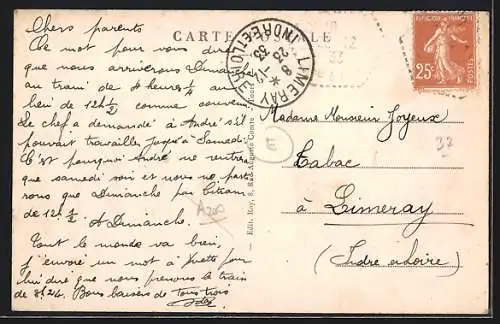 CARTE POSTALE
Chers parents
Ce mot pour vous dire
que nous arriverons Dimanche
au train de 4 heures 1/4 au
lieu de 12h 1/2 comme convenu
Le chef a demandé à André s'il
pouvait travailler jusqu'à Samedi.
C'est pourquoi André ne rentre
que samedi soir et nous ne par-
tirons que Dimanche par
de 12h 1/2
A Dimanche.
Tout le monde va bien,
j'envoie un mot à Yvette pour
lui dire que nous prenons le train
de Bons baisers de Tous trois
Edit. Roy, 8, Rue
LIMERAY
INDRE-ET-LOIRE
25c
POSTES
Madame Monsieur Joyeux
Tabac
à Limeray
(Indre et Loire)
37
E
A200